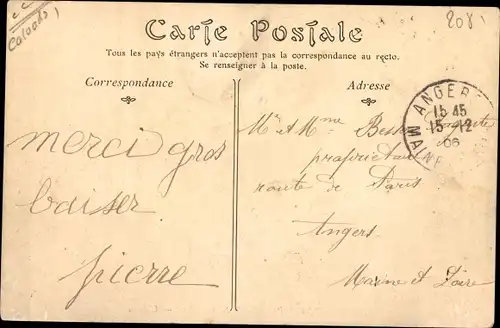 (Calvados)
208
Carte Postale
Tous les pays étrangers n'acceptent pas la correspondance au recto.
Se renseigner à la poste.
Correspondance
Adresse
ANGERS
15 45
15 - 12
06
MAINE
merci gros
baiser
pierre
Mr et Mme
propriétaire
route de Paris
Angers
Maine et Loire